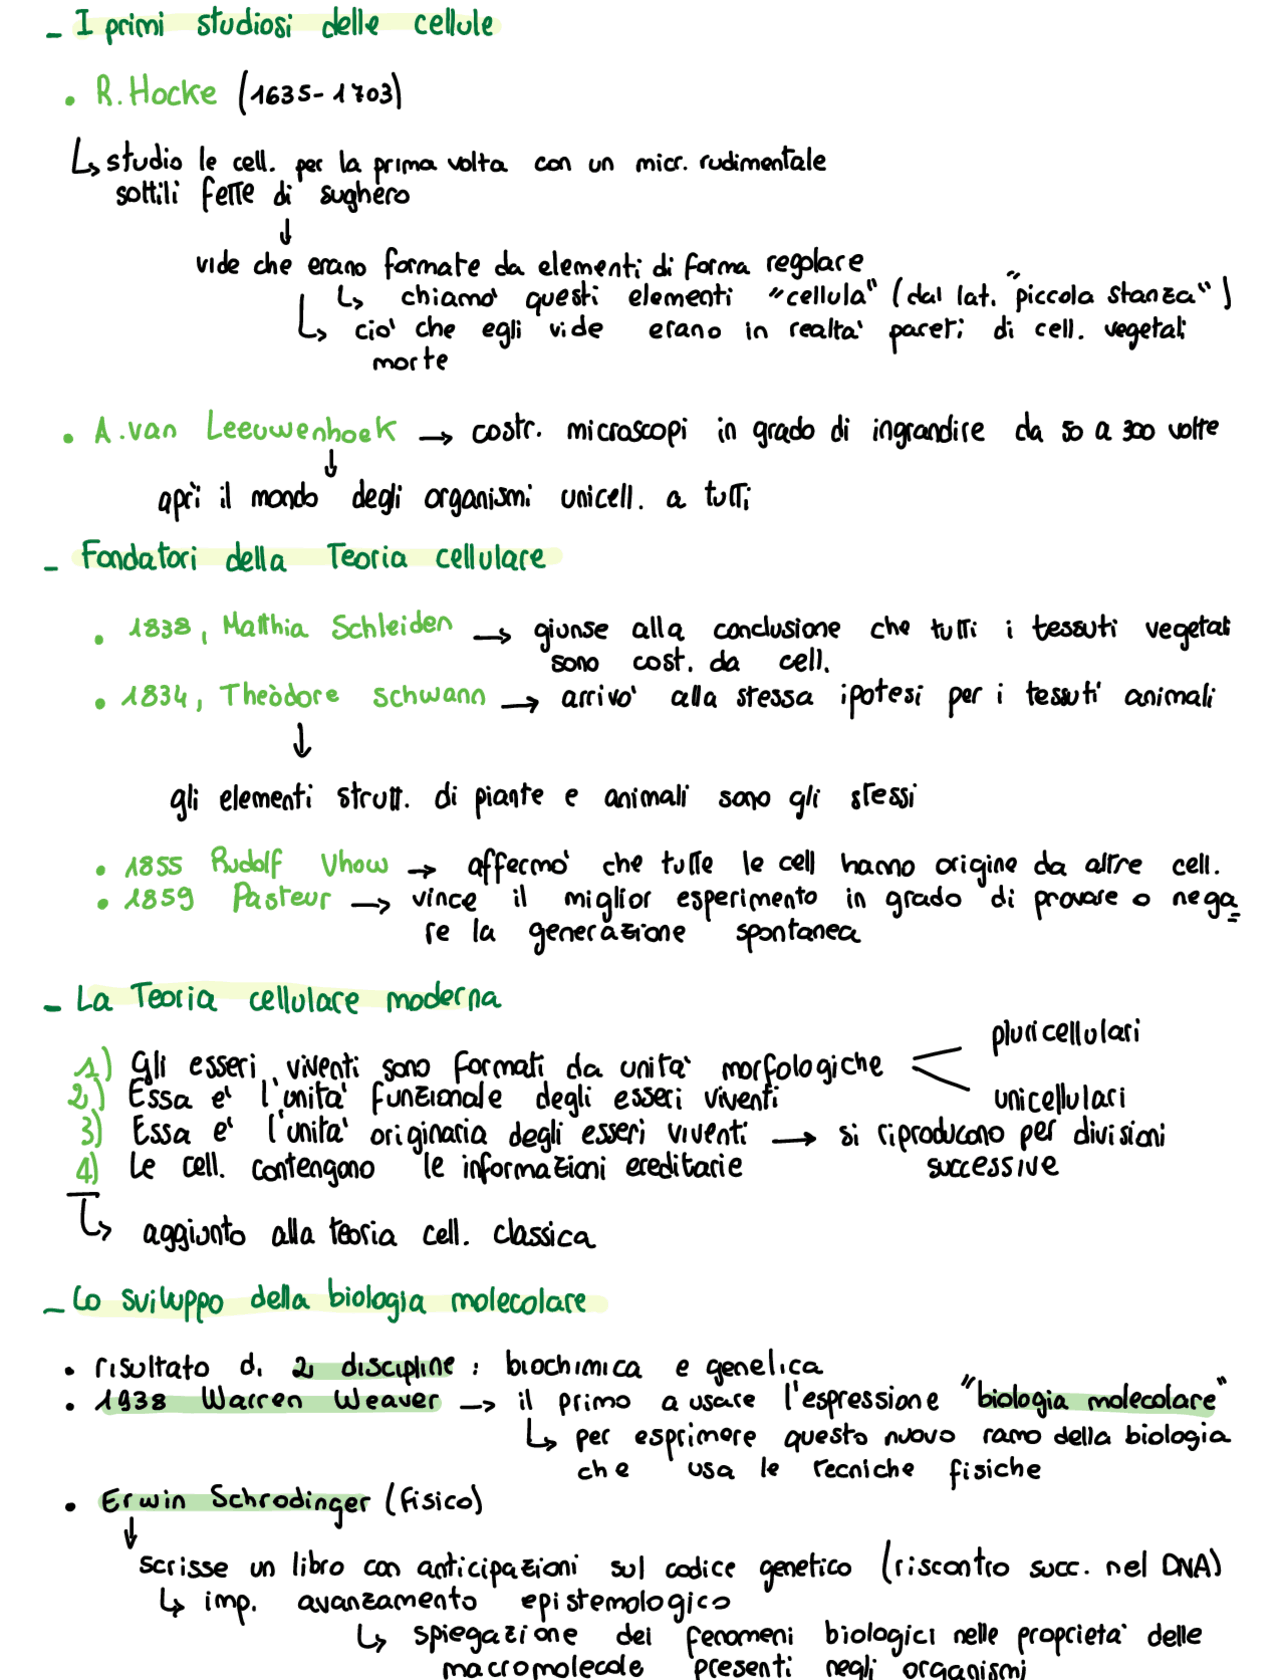 - I primi studiosi delle cellule
• R. Hocke (1635-1703)
↳ studio le cell. per la prima volta con un micr. rudimentale
sottili fette di sughero
↓
vide che erano formate da elementi di forma regolare
↳ chiamo' questi elementi "cellula" (dal lat. "piccola stanza")
↳ cio' che egli vide erano in realta' pareti di cell. vegetali
morte
• A. van Leeuwenhoek → costr. microscopi in grado di ingrandire da 50 a 300 volte
↓
aprì il mondo degli organismi unicell. a tutti
- Fondatori della Teoria cellulare
• 1838, Matthia Schleiden → giunse alla conclusione che tutti i tessuti vegetali
sono cost. da cell.
• 1834, Theòdore Schwann → arrivo' alla stessa ipotesi per i tessuti animali
↓
gli elementi strutt. di piante e animali sono gli stessi
• 1855 Rudolf Vhow → affermo' che tutte le cell hanno origine da altre cell.
• 1859 Pasteur → vince il miglior esperimento in grado di provare o nega
re la generazione spontanea
- La Teoria cellulare moderna
pluricellulari
1) Gli esseri viventi sono formati da unita' morfologiche
2) Essa e' l'unita' funzionale degli esseri viventi
unicellulari
3) Essa e' l'unita' originaria degli esseri viventi → si riproducono per divisioni
successive
4) Le cell. contengono le informazioni ereditarie
↳ aggiunto alla teoria cell. classica
- Lo sviluppo della biologia molecolare
• risultato di 2 discipline: biochimica e genetica
• 1938 Warren Weaver → il primo a usare l'espressione "biologia molecolare"
↳ per esprimere questo nuovo ramo della biologia
che usa le tecniche fisiche
• Erwin Schrodinger (fisico)
↓
scrisse un libro con anticipazioni sul codice genetico (riscontro succ. nel DNA)
↳ imp. avanzamento epistemologico
↳ spiegazione dei fenomeni biologici nelle proprieta' delle
macromolecole presenti negli organismi